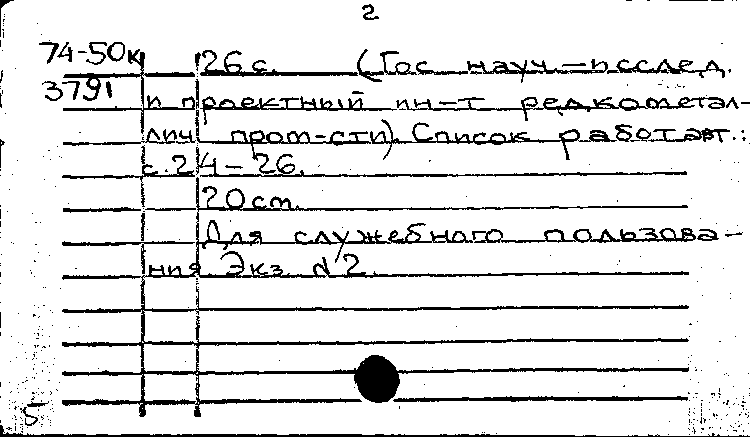 2
74-50к 26 с. (Гос. науч.-исслед.
3791 и проектный ин-т редкометал-
лич. пром-сти). Список работ авт.:
с.24-26.
20 см.
Для служебного пользова-
ния Экз. №2.
5